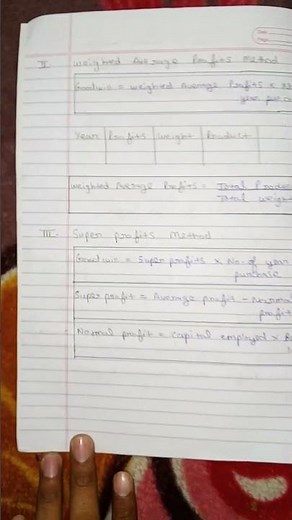 II Weighted Average Profits Method
Goodwill = Weighted Average Profits x
year
Years Profits Weight Product
Weighted Average Profits = Total
Total weight
III. Super Profits Method
Goodwill = Super profits x No. of year
purchase
Super profit = Average profit - Normal
profit
Normal profit = Capital employed x